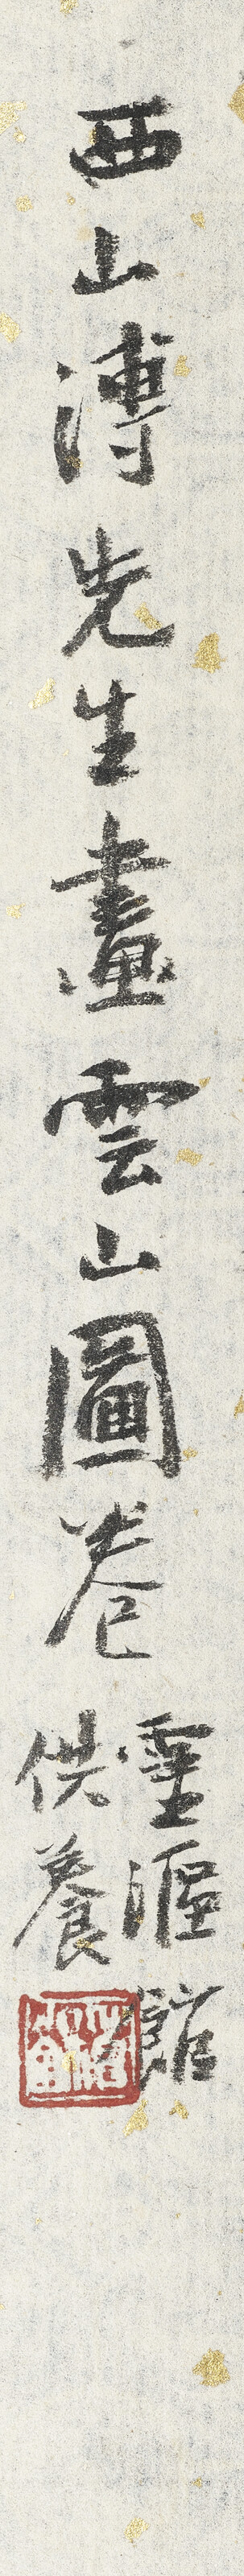 西山溥先生畫雲山圖卷
靈漚館
供養